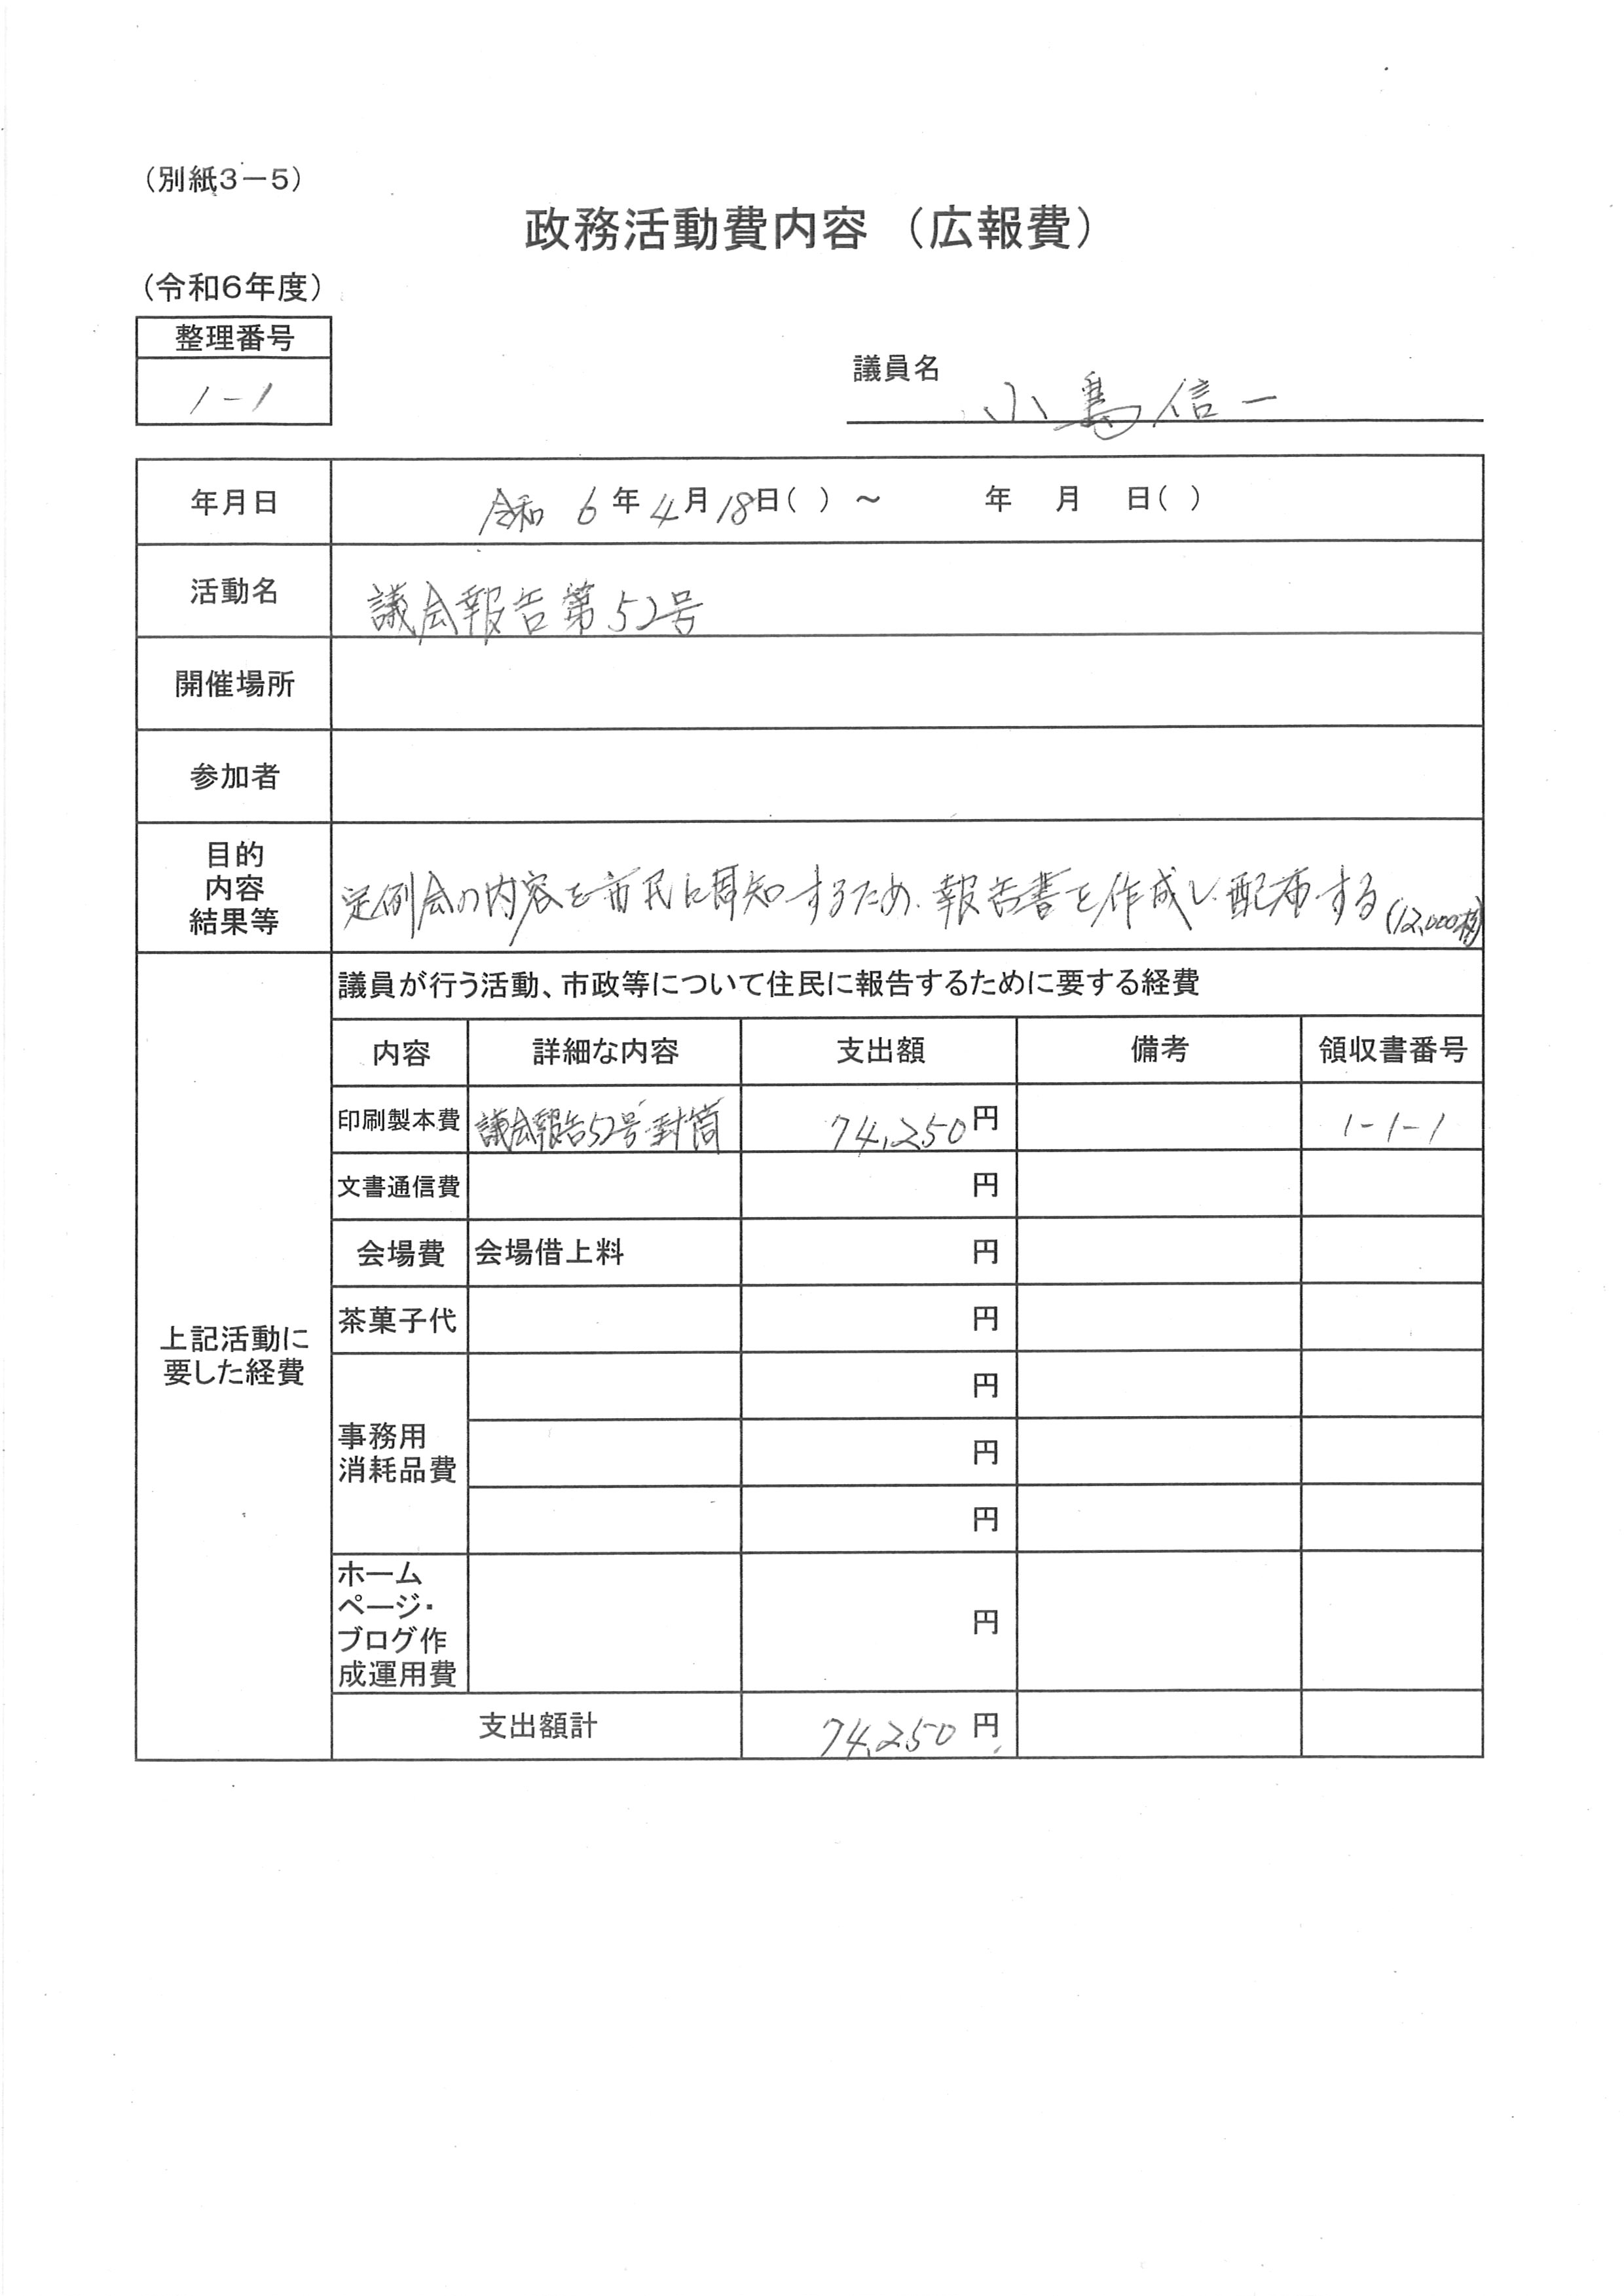 （別紙３－５）
政務活動費内容 （広報費）
（令和６年度）
整理番号
1-1
議員名
小島信一
年月日 令和 6 年 4 月 18 日（ ） ～ 年 月 日（ ）
活動名 議会報告第52号
開催場所
参加者
目的
内容
結果等
定例会の内容を市民に周知するため、報告書を作成し、配布する (12,000枚)
議員が行う活動、市政等について住民に報告するために要する経費
内容 詳細な内容 支出額 備考 領収書番号
印刷製本費 議会報告52号・封筒 74,250 円 1-1-1
文書通信費 円
会場費 会場借上料 円
茶菓子代 円
上記活動に
要した経費
円
事務用
消耗品費
円
円
ホーム
ページ・
ブログ作
成運用費
円
支出額計 74,250 円